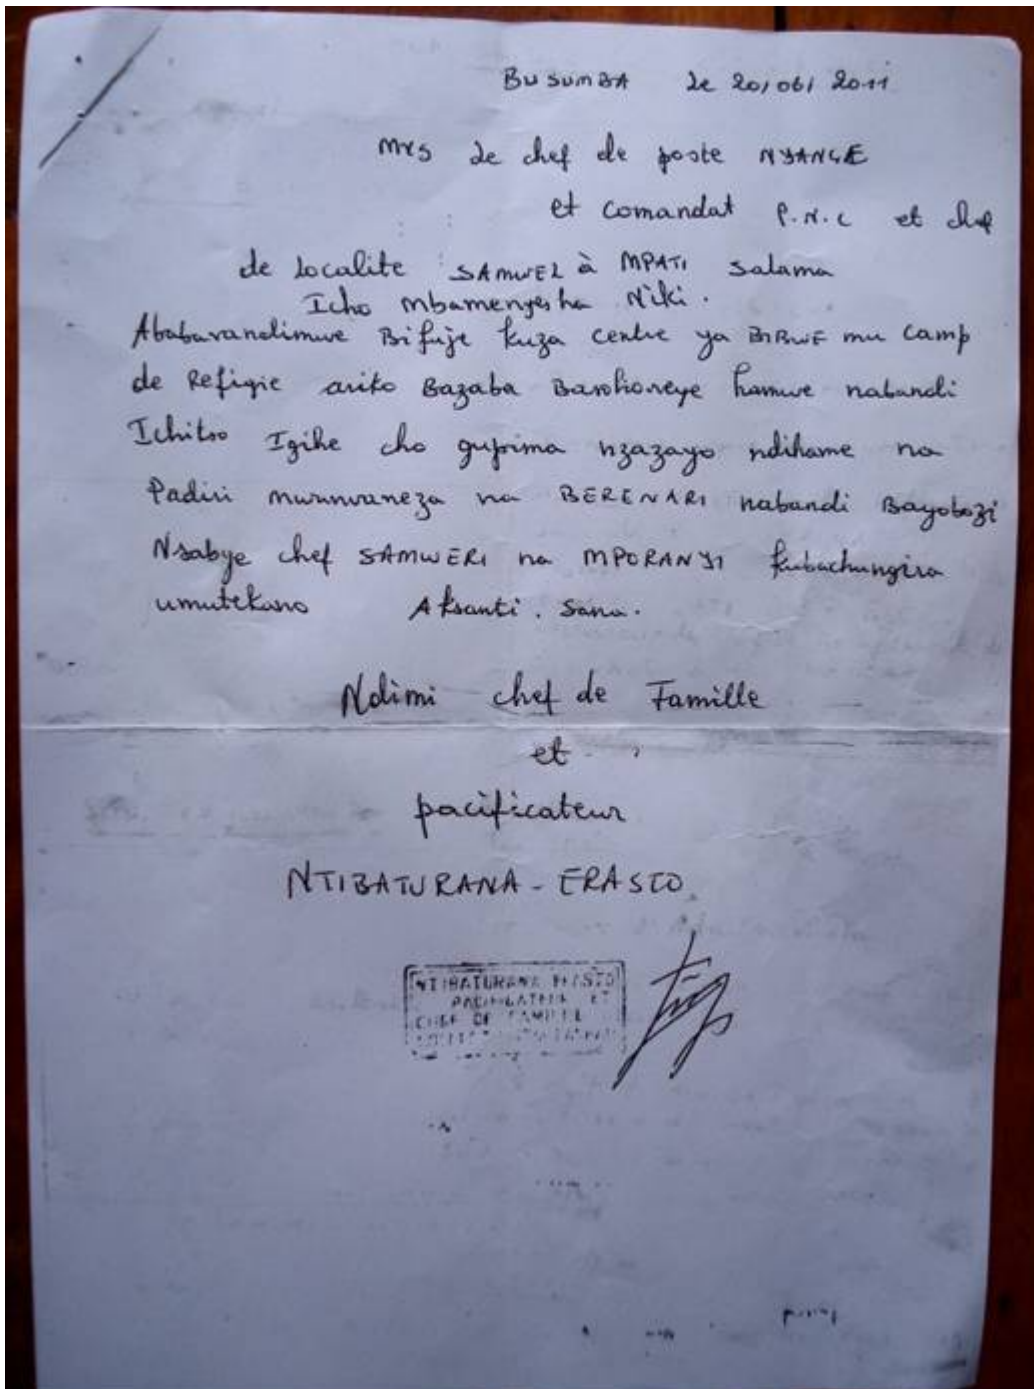 BUSUMBA le 20/06/2011
Mrs le chef de poste NYANGE
et comandat P.N.C et chef
de Localite SAMWEL à MPATI Salama
Icho Mbamenyesha Niki.
Ababavandimwe Bifuje kuza centre ya BIBWE mu camp
de Refigie ariko Bazaba Barohoreye hamwe nabandi
Ichitso Igihe cho gupima nzazayo ndihame na
Padiri munvaneza na BERENARI nabandi Bayobozi
Nsabye chef SAMWERI na MPORANYI kubachungira
umutekano Aksanti. Sana.
Ndimi chef de Famille
et
pacificateur
NTIBATURANA - ERASTO
NTIBATURANA ERASTO
PACIFICATEUR ET
CHEF DE FAMILLE